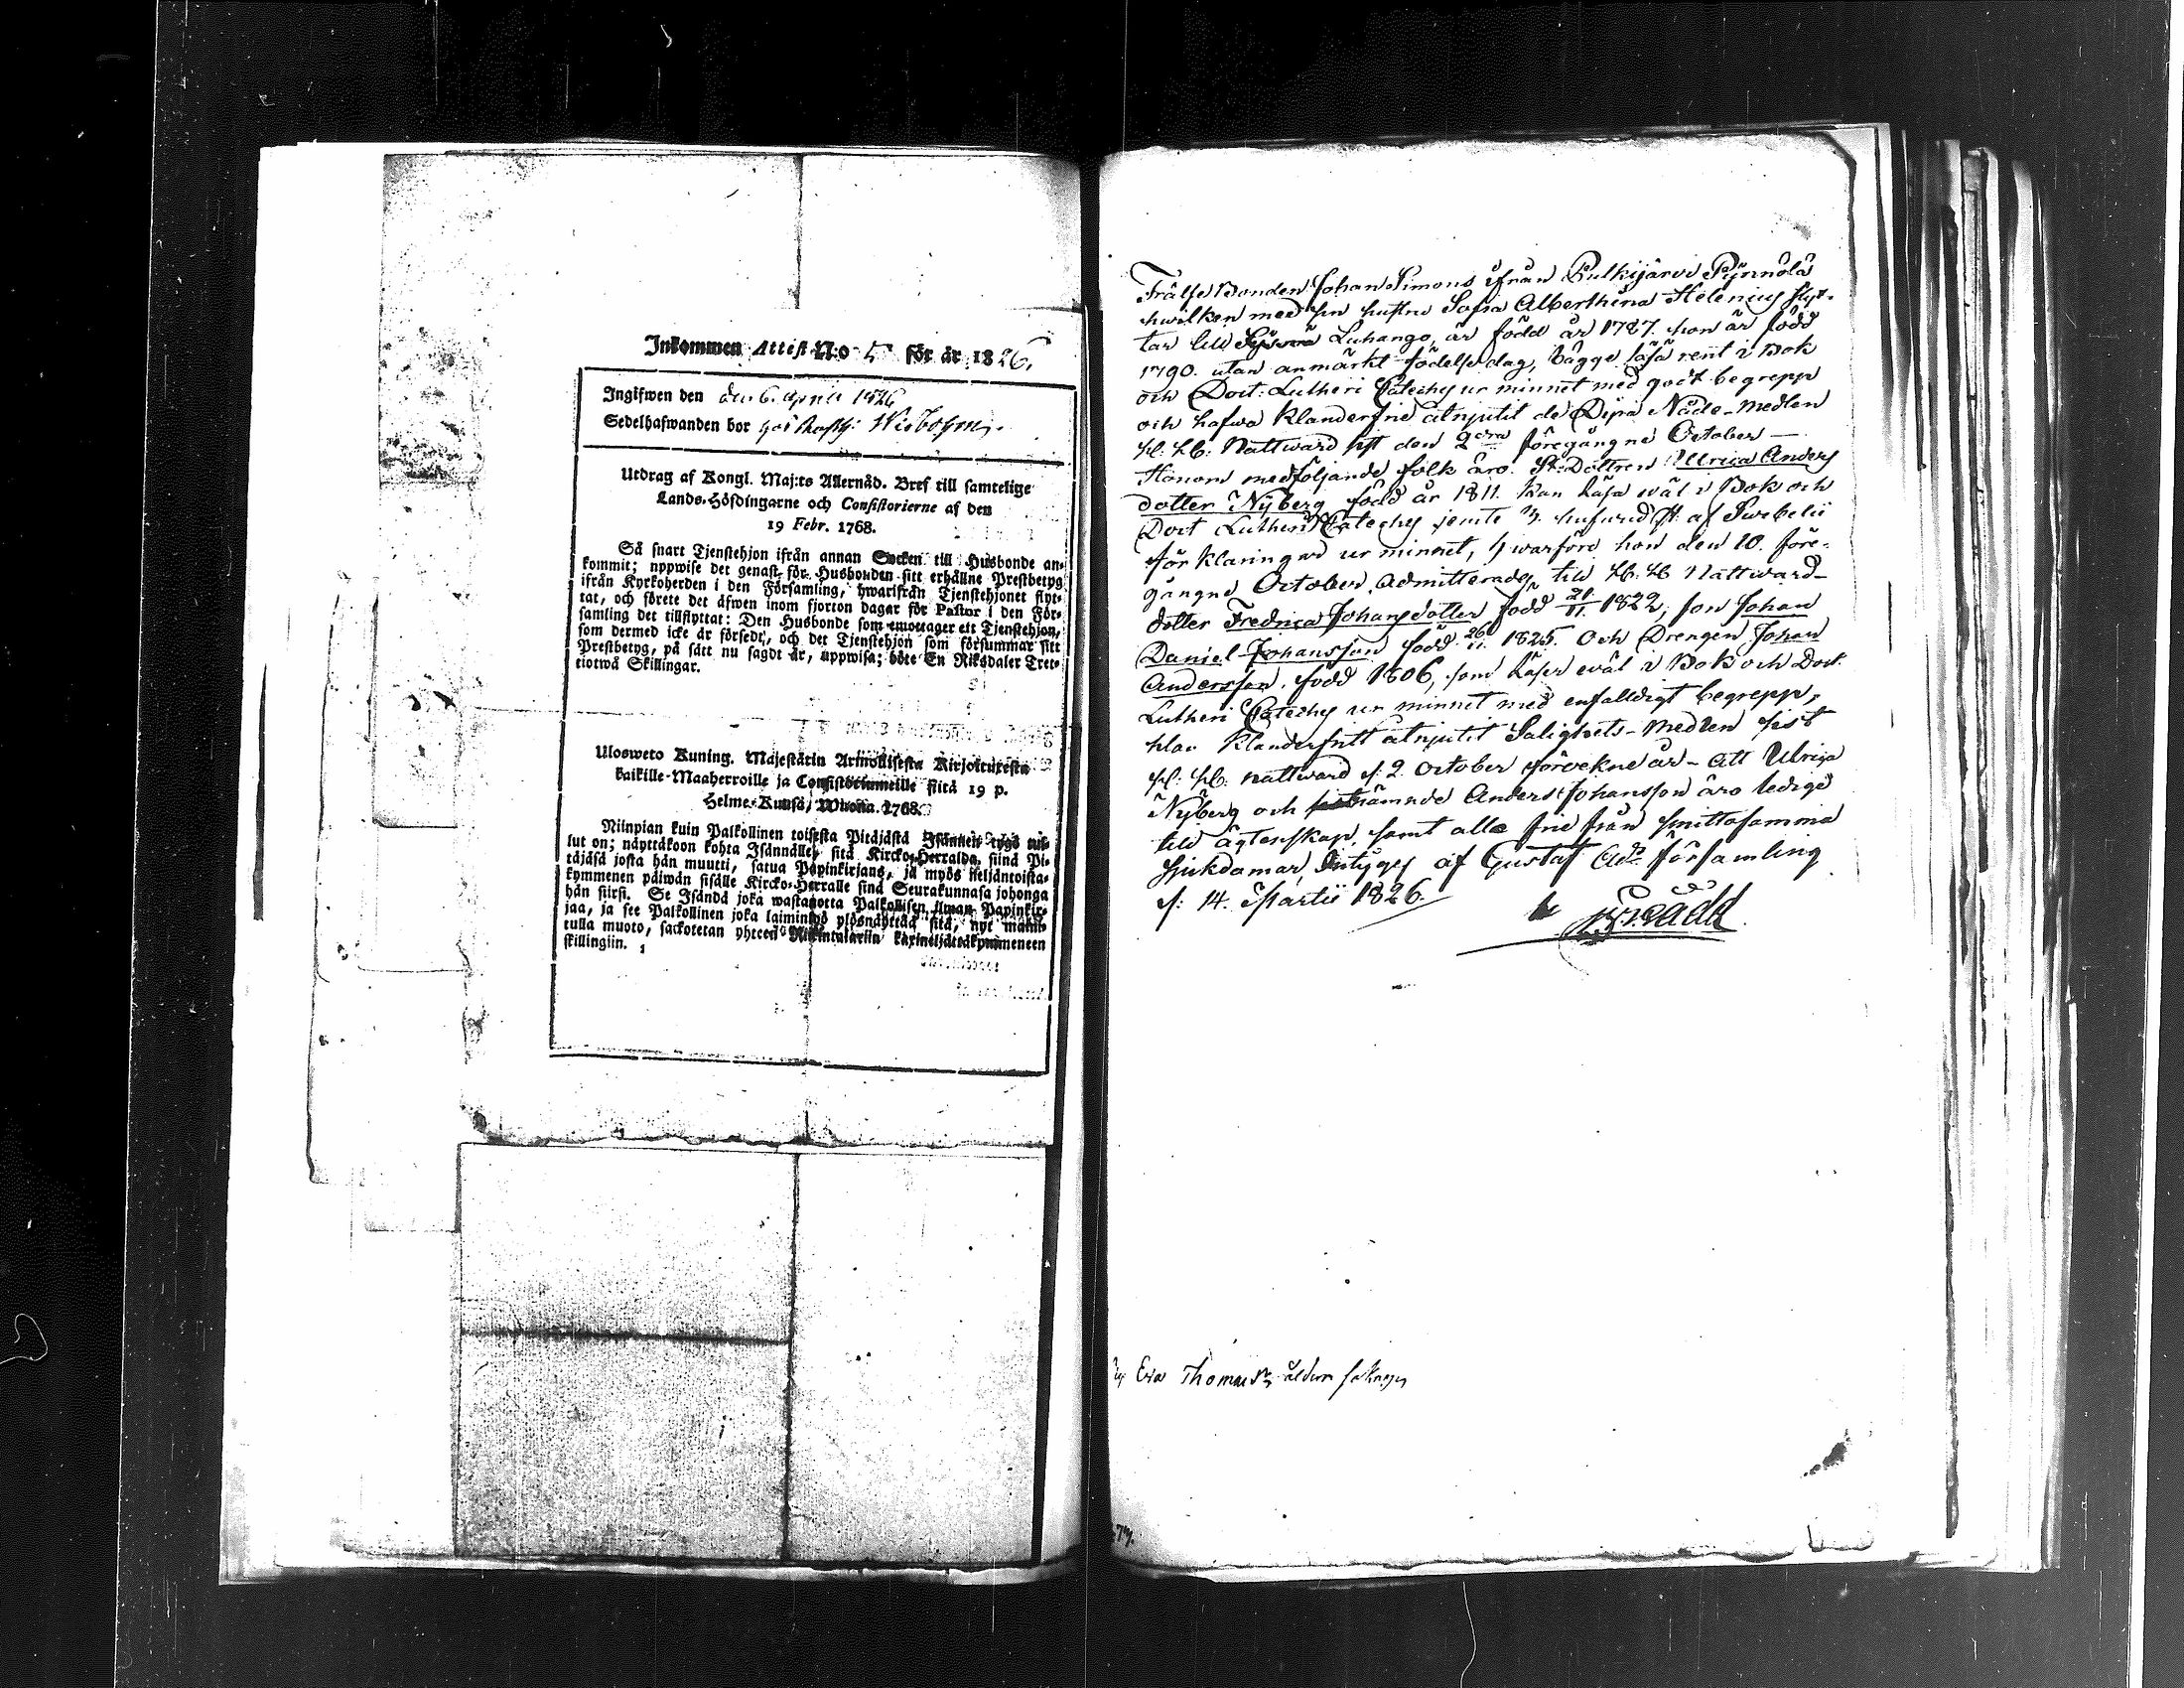 Inkommen Attest N:o 5 för år 1826.
Ingifwen den den 6 April 1826
Sedelhafwanden bor
Utdrag af Kongl. Maj:ts Allernåd. Bref till samtelige
Lands-Höfdingarne och Consistorierne af den
19 Febr. 1768.
Så snart Tjenstehjon ifrån annan Socken till Husbonde an-
kommit; uppwise det genast för Husbonden sitt erhållne Prestbetyg
ifrån Kyrkoherden i den Församling, hwarifrån Tjenstehjonet flyt-
tat, och förete det äfwen inom fjorton dagar för Pastor i den För-
samling det tillflyttat: Den Husbonde som emottager ett Tjenstehjon,
som dermed icke är försedt, och det Tjenstehjon som försummar sitt
Prestbetyg, på sätt nu sagdt är, uppwisa; böte En Riksdaler Tret-
tiotwå Skillingar.
Ulosweto Kuning. Majestätin Armollisesta Kirjoituxesta
kaikille Maaherroille ja Consistoriumeille siitä 19 p.
Helme-Kuusa, Wuonna 1768.
Niinpian kuin Palkollinen toisesta Pitäjästä Isännen tygö tul-
lut on; näyttäkoon kohta Isännälles sitä Kircko-Herralda, siinä Pi-
täjäsä josta hän muutti, saatua Papinkirjans, ja myös neljäntoista-
kymmenen päiwän sisälle Kircko-Herralle siinä Seurakunnasa johonga
hän siirsi. Se Isändä joka wastanotta Palkollisen ilman Papinkir-
jaa, ja se Palkollinen joka laiminlyö ylösnäyttää sitä, nyt maini-
tulla muoto, sackotetan yhteen Rikintalariin kaxineljättäkymmeneen
skillingiin.
Frälse Bonden Johan Simons ifrån Pulkijärvi Pynnölä
hwilken med sin hustru Sofia Alberthina Helenius flyt-
tar till Sysmä Luhango, är född år 1787. hon är född
1790. utan anmärkt födelsedag, bägge läsa rent i Bok
och Doct: Lutheri Cateches ur minnet med godt begrepp
och hafwa klanderfrie åtnjutit de Dyra Nåde-medlen
H. H. Nattward sist den 2dra föregångne October —
Honom medföljande folk äro. St: Dottren Ullrica Anders
dotter Nyberg född år 1811. kan läsa wäl i Bok och
Doct Lutheri Cateches jemte af Swebelii
förklaringar ur minnet, hwarföre hon den 10. före-
gångne October Admitterades till H. H Nattward —
dotter Fredrica Johansdotter född 21/11 1822, son Johan
Daniel Johansson född 26/11 1825. Och Drengen Johan
Andersson, född 1806, som läser wäl i Bok och Doct.
Lutheri Cateches ur minnet med enfalldigt begrepp,
klanderfritt åtnjutit Salighets-Medlen sist
H: H: nattward d: 2. October förwekne år — Att Ulrica
Nyberg och nämnde Anders Johansson äro ledige
till ägtenskap, samt alle frie från smittosamma
Sjukdomar, Intyges af Gustaf Ad: församling
d: 14. Martii 1826.
Eva Thomasdr